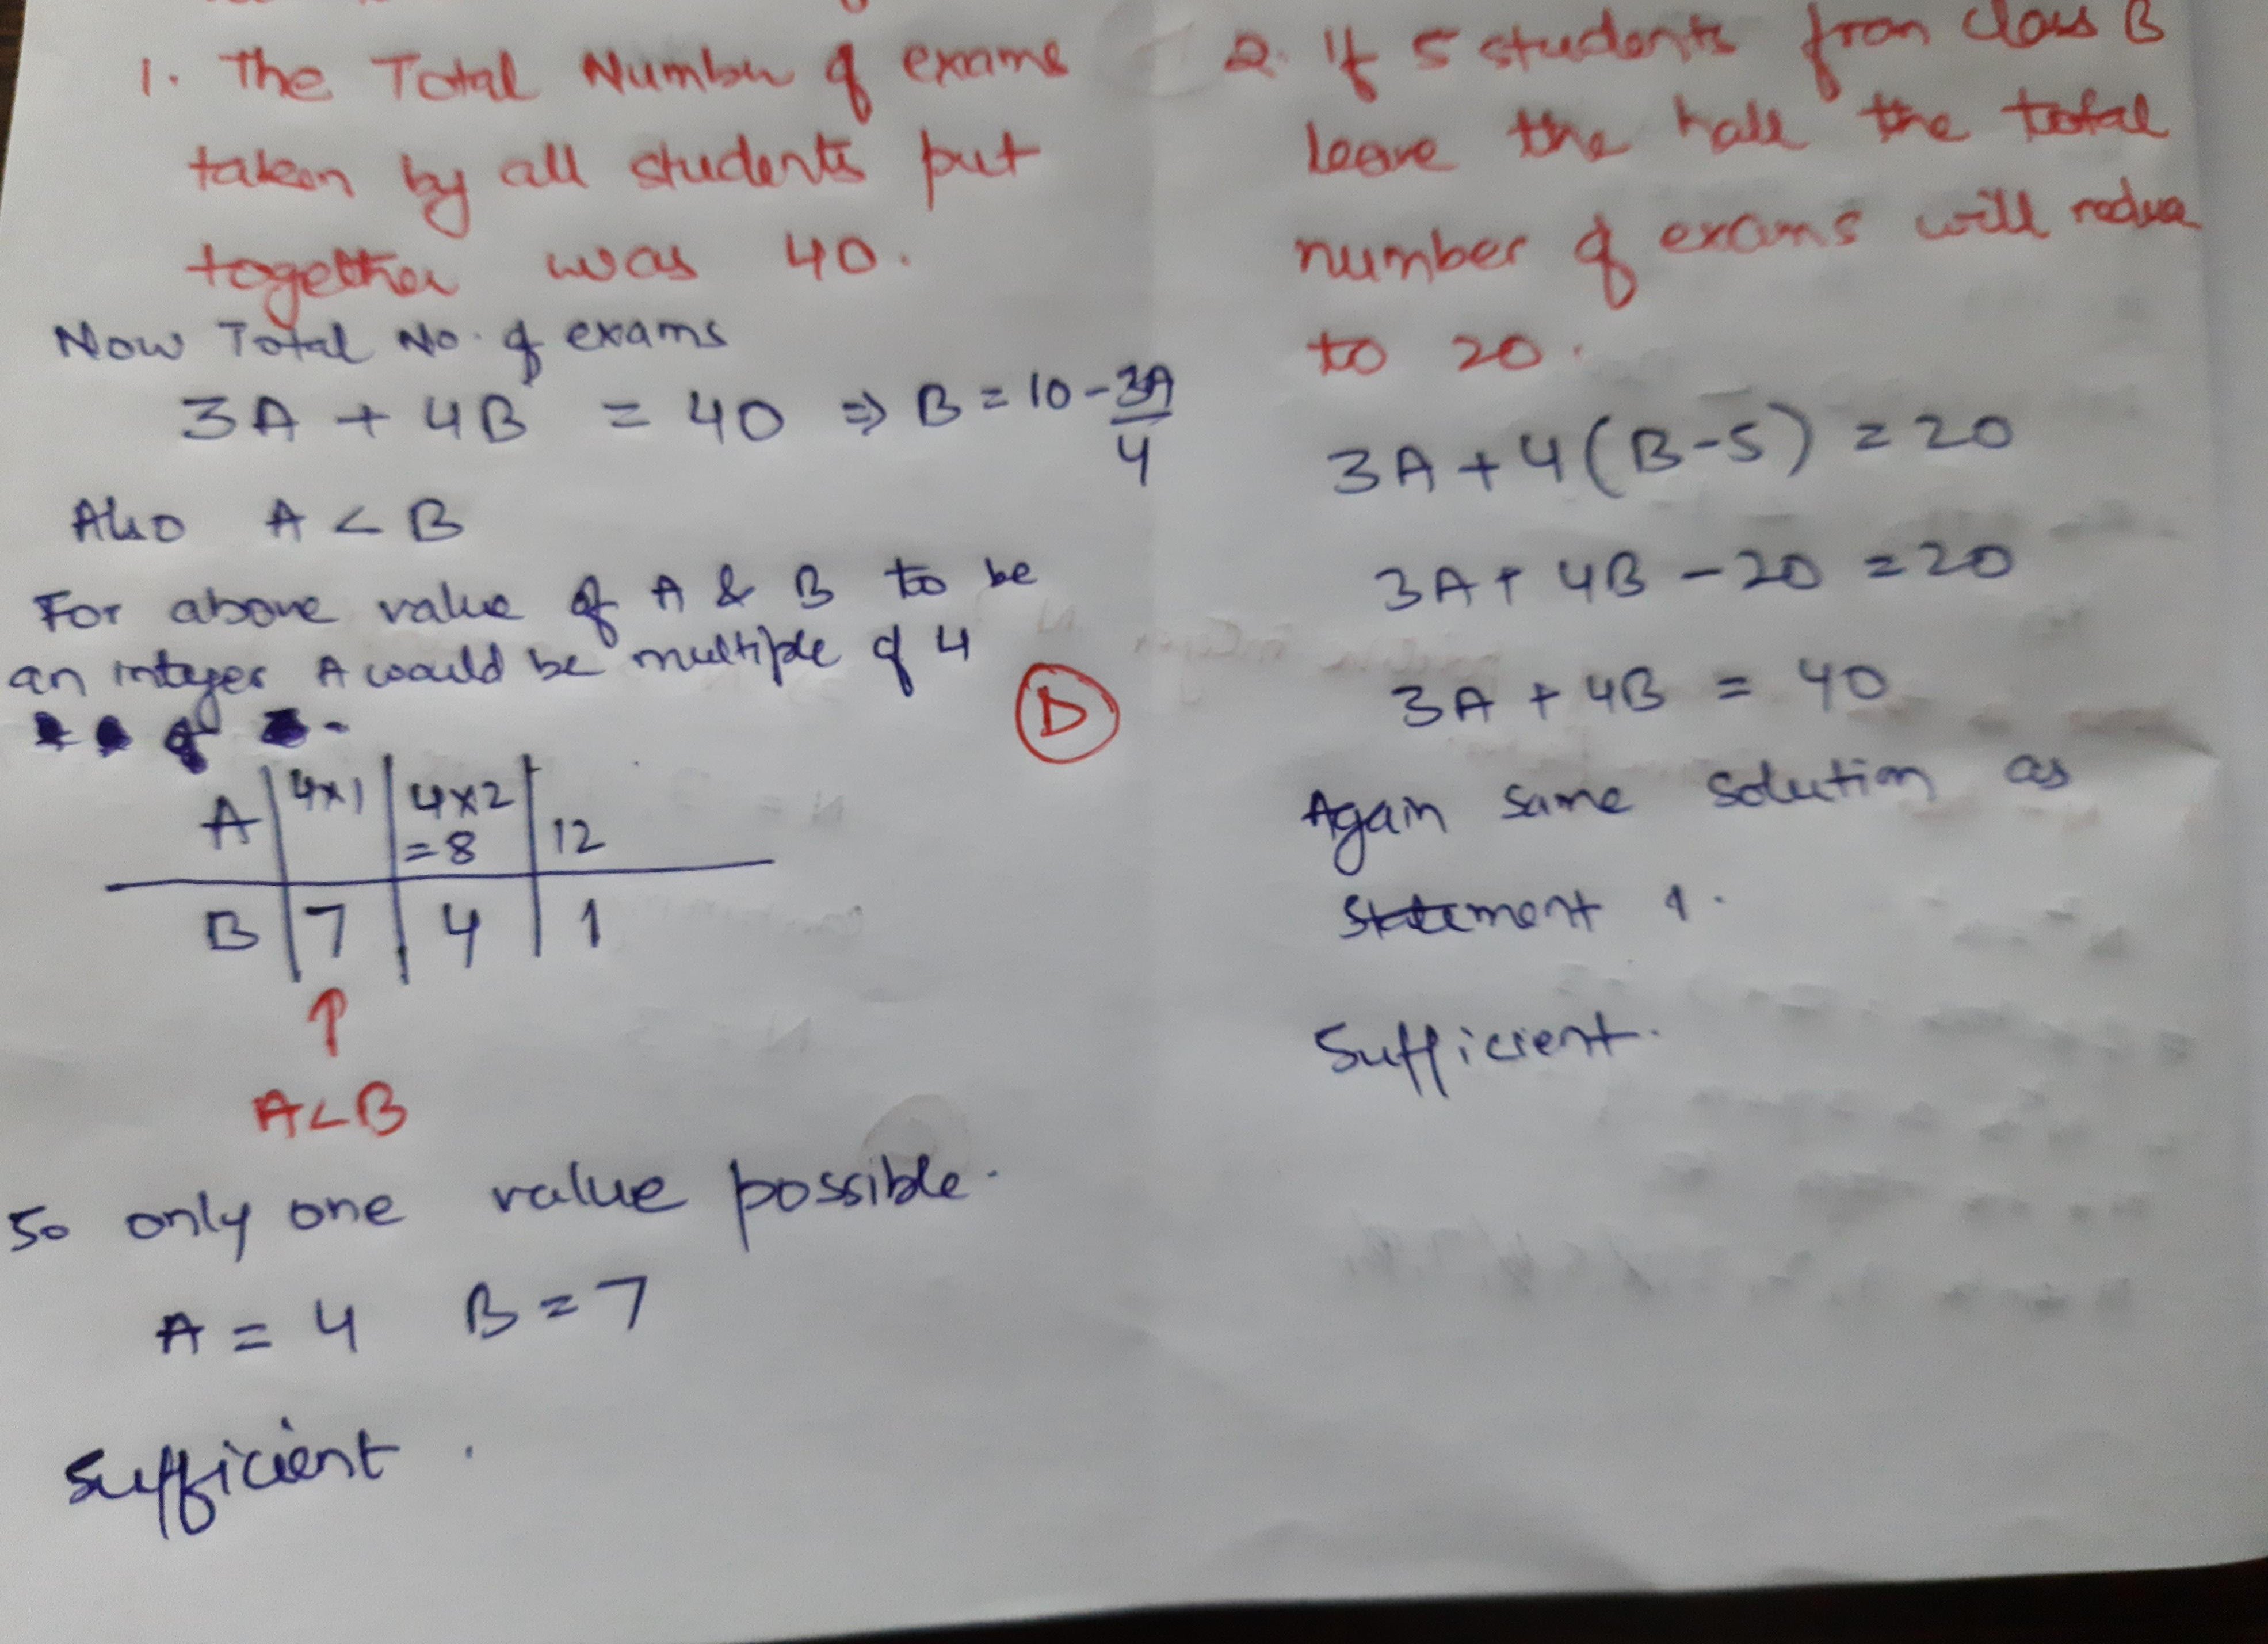 1. The Total Number of exams
taken by all students put
together was 40.
Now Total No. of exams
3A + 4B = 40 ⇒ B = 10 - 3A/4
Also A < B
For above value of A & B to be
an integer A would be multiple of 4
D
A | 4x1 | 4x2 =8 | 12
B | 7 | 4 | 1
↑
A<B
So only one value possible.
A = 4 B = 7
Sufficient.
2. If 5 students from class B
leave the hall the total
number of exams will reduce
to 20.
3A + 4(B-5) = 20
3A + 4B - 20 = 20
3A + 4B = 40
Again same solution as
statement 1.
Sufficient.